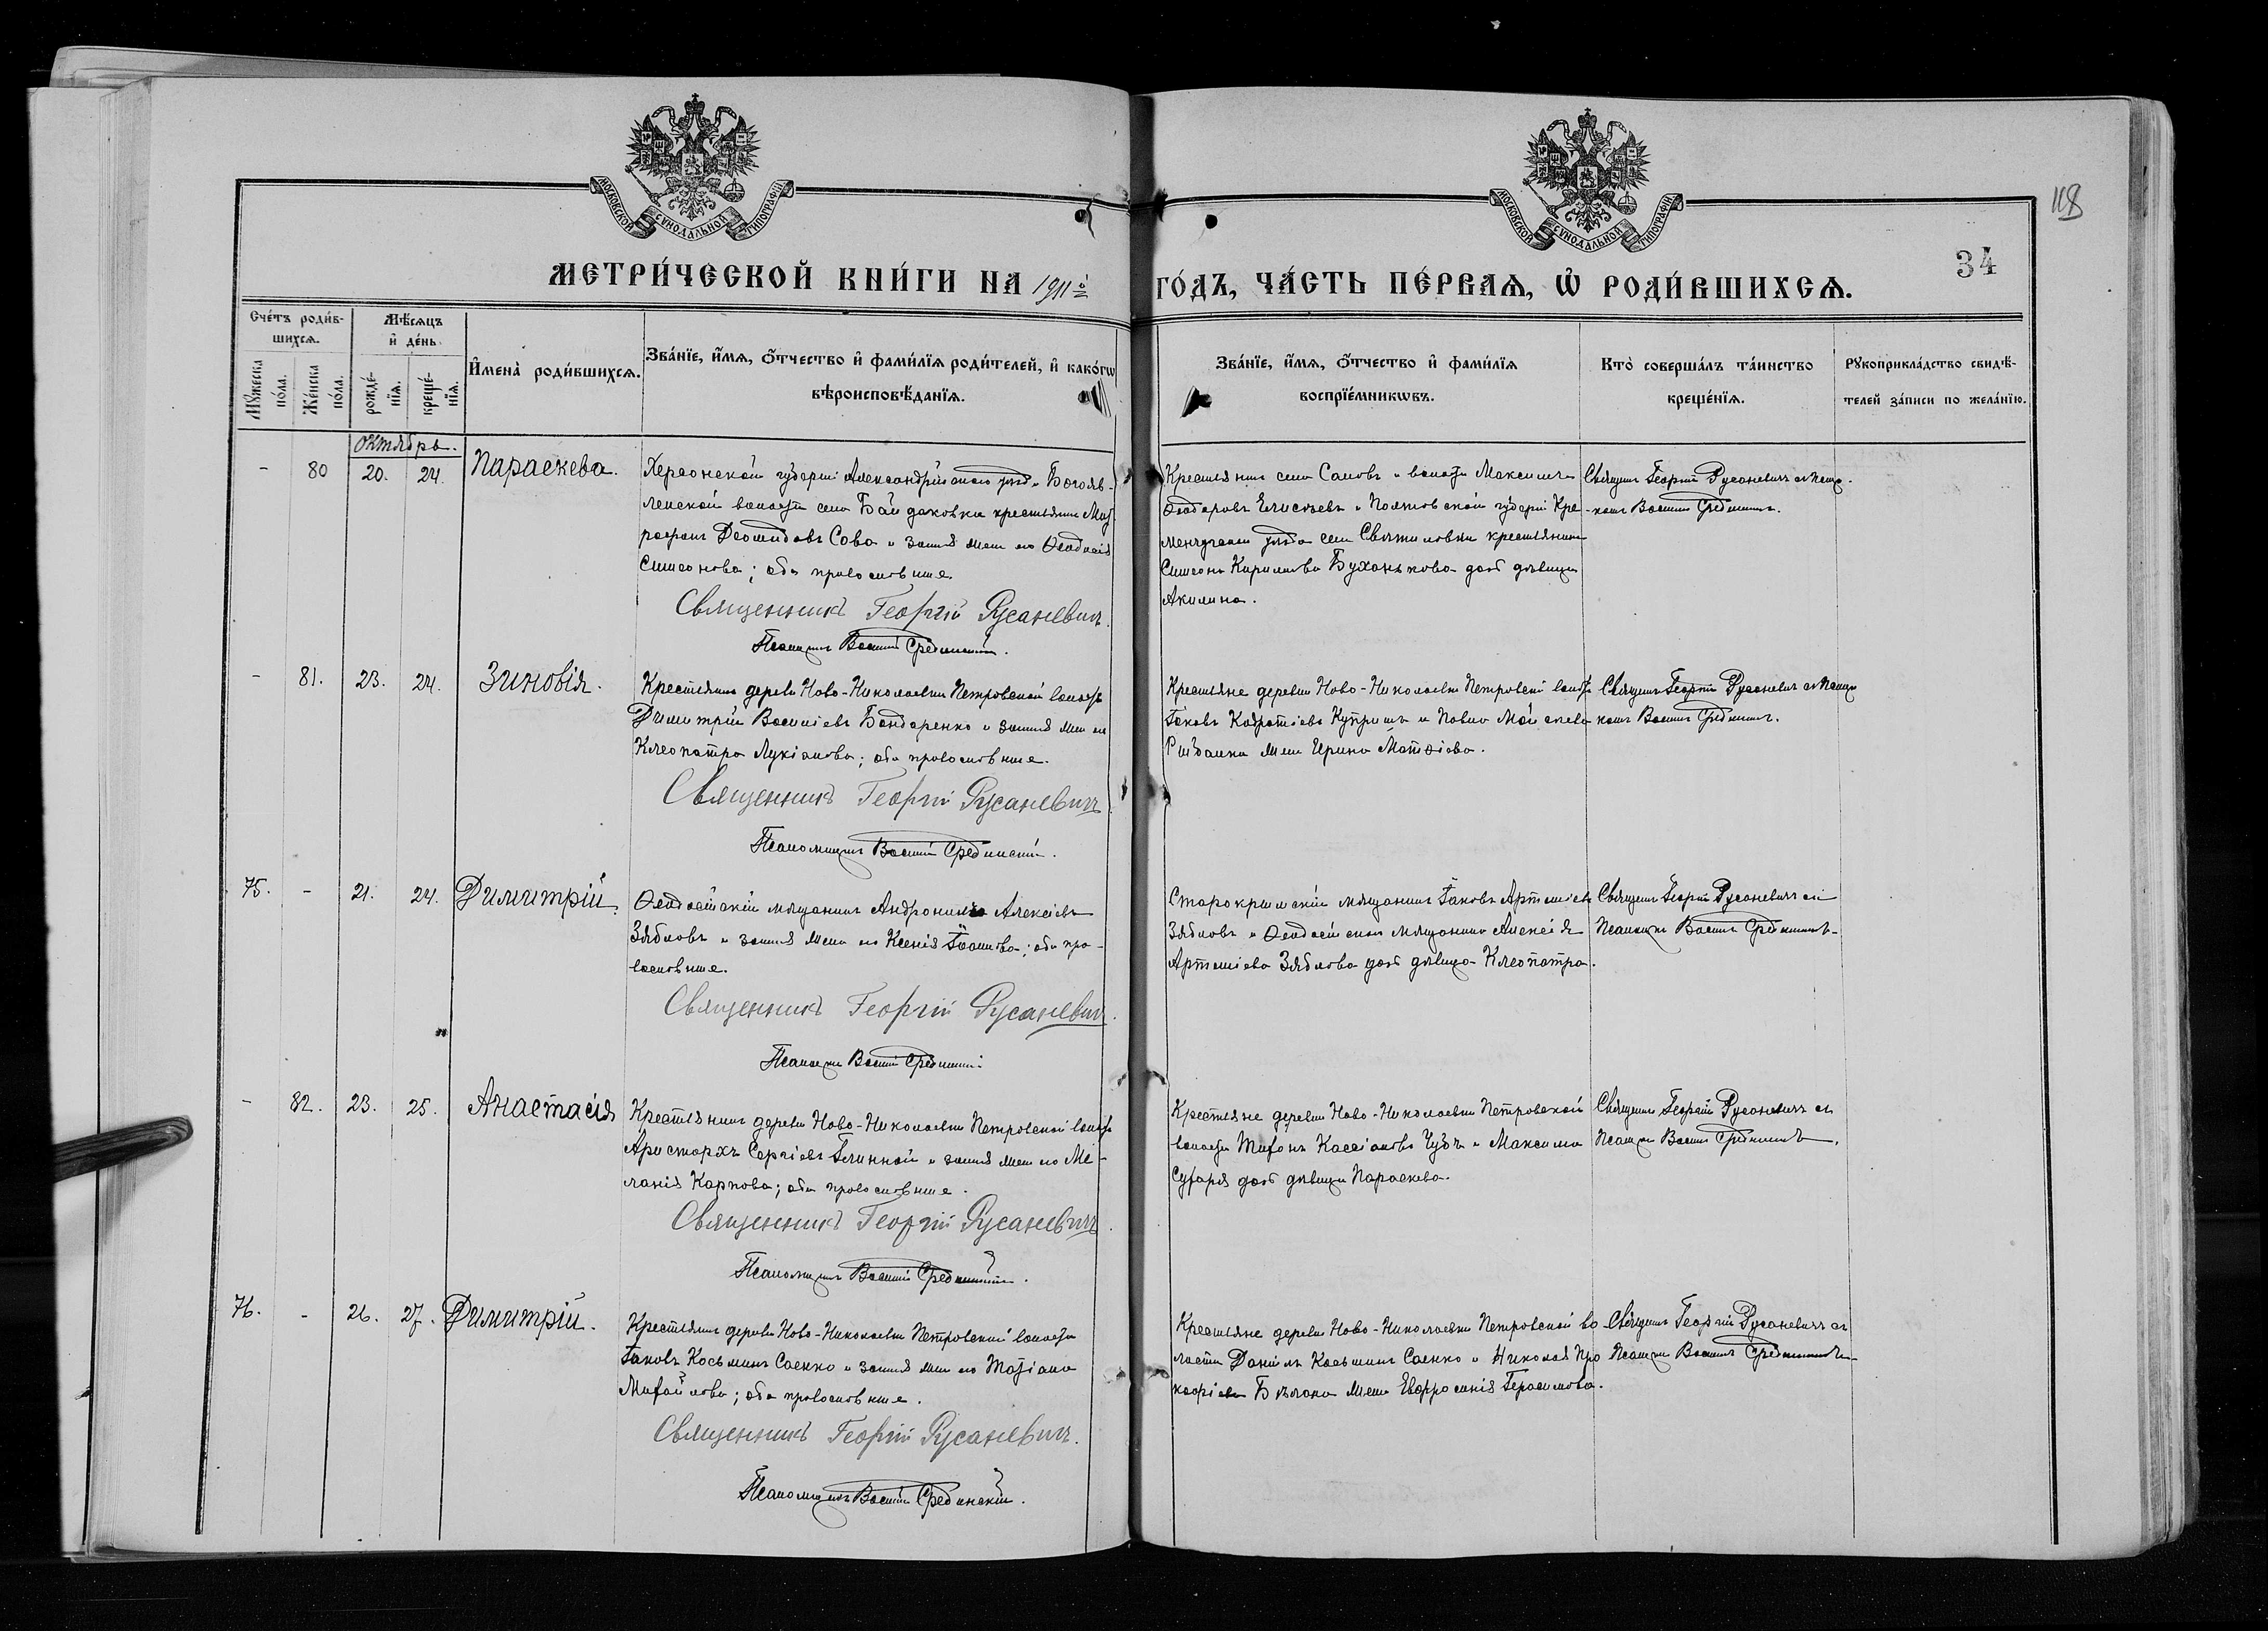 118
34
МОСКОВСКОЙ СѴНОДАЛЬНОЙ ТИПОГРАФІИ
МОСКОВСКОЙ СѴНОДАЛЬНОЙ ТИПОГРАФІИ
МЕТРИ́ЧЕСКОЙ КНИ́ГИ НА 1911й ГО́ДЪ, ЧА́СТЬ ПЕ́РВАѦ, Ѡ҆ РОДИ́ВШИХСѦ.
Сче́тъ роди́в-
шихсѧ.
Мꙋжеска
по́ла.
Же́нска
по́ла.
Мѣ́сѧцъ
и҆ де́нь
рожде́-
нїѧ.
креще́-
нїѧ.
И҆мена̀ роди́вшихсѧ.
Зва́нїе, и҆́мѧ, ѻ҆́тчество и҆ фами́лїѧ роди́телей, и҆ како́гѡ
вѣроисповѣ́данїѧ.
Зва́нїе, и҆́мѧ, ѻ҆́тчество и҆ фами́лїѧ
воспрїе́мникѡвъ.
Кто̀ соверша́лъ та́инство
креще́нїѧ.
Рꙋкоприкла́дство свидѣ́-
телей за́писи по жела́нїю.
Октябрь.
- 80 20. 24. Параскева.
Херсонской губерніи Александрійскаго уѣзда Богояв-
ленской волости села Байдаковки крестьянинъ Мит
рофанъ Деомидовъ Сова и законная жена его Ѳеодосія
Симеонова; оба православные
Священникъ Георгій Русаневичъ.
Псаломщикъ Василій Срединскій.
Крестьянинъ села волости Максимъ
Ѳеодоровъ Елисѣевъ и Полтавской губерніи Кре-
менчугскаго уѣзда села Святиловки крестьянина
Симеона Кирилова Буханькова дочь дѣвица
Акилина.
Священникъ Георгій Русаневичъ съ псалом-
комъ Василій Срединскимъ.
- 81. 23. 24. Зиновія.
Крестьянинъ деревни Ново-Николаевки Петровской волости
Димитрій Василіевъ Бондаренко и законная жена его
Клеопатра Лукіанова; оба православные.
Священникъ Георгій Русаневичъ.
Псаломщикъ Василій Срединскій.
Крестьяне деревни Ново-Николаевки Петровской волости
Іаковъ Кодратіевъ и Павла
жена Ирина Матѳіева.
Священникъ Георгій Русаневичъ съ псалом
комъ Василій Срединскимъ.
75. - 21. 24. Димитрій.
Ѳеодосійскій мѣщанинъ Андроникъ Алексіевъ
Зябловъ и законная жена его Ксенія Іоаннова; оба пра-
вославные.
Священникъ Георгій Русаневичъ.
Псаломщикъ Василій Срединскій.
Старокрымскій мѣщанинъ Іаковъ Артеміевъ
Зябловъ и Ѳеодосійскаго мѣщанина Алексія
Артеміева Зяблова дочь дѣвица Клеопатра.
Священникъ Георгій Русаневичъ съ
Псаломщ. Василій Срединскимъ.
- 82. 23. 25. Анастасія
Крестьянинъ деревни Ново-Николаевки Петровской волости
Аристархъ Сергіевъ Глинной и законная жена его Ме-
ланія Карпова; оба православные.
Священникъ Георгій Русаневичъ.
Псаломщикъ Василій Срединскій.
Крестьяне деревни Ново-Николаевки Петровской
волости Тихонъ Кассіановъ Чубъ и Максима
Сухаря дочь дѣвица Параскева.
Священникъ Георгій Русаневичъ съ
Псаломщ. Василій Срединскимъ.
76. - 26. 27. Димитрій.
Крестьянинъ деревни Ново-Николаевки Петровской волости
Іаковъ Косьминъ Саенко и законная жена его Татіана
Михайлова; оба православные.
Священникъ Георгій Русаневичъ.
Псаломщикъ Василій Срединскій.
Крестьяне деревни Ново-Николаевки Петровской во
лости Даніилъ Косьминъ Саенко и Николая
жена Евфросинія Герасимова.
Священникъ Георгій Русаневичъ съ
Псаломщ. Василій Срединскимъ.